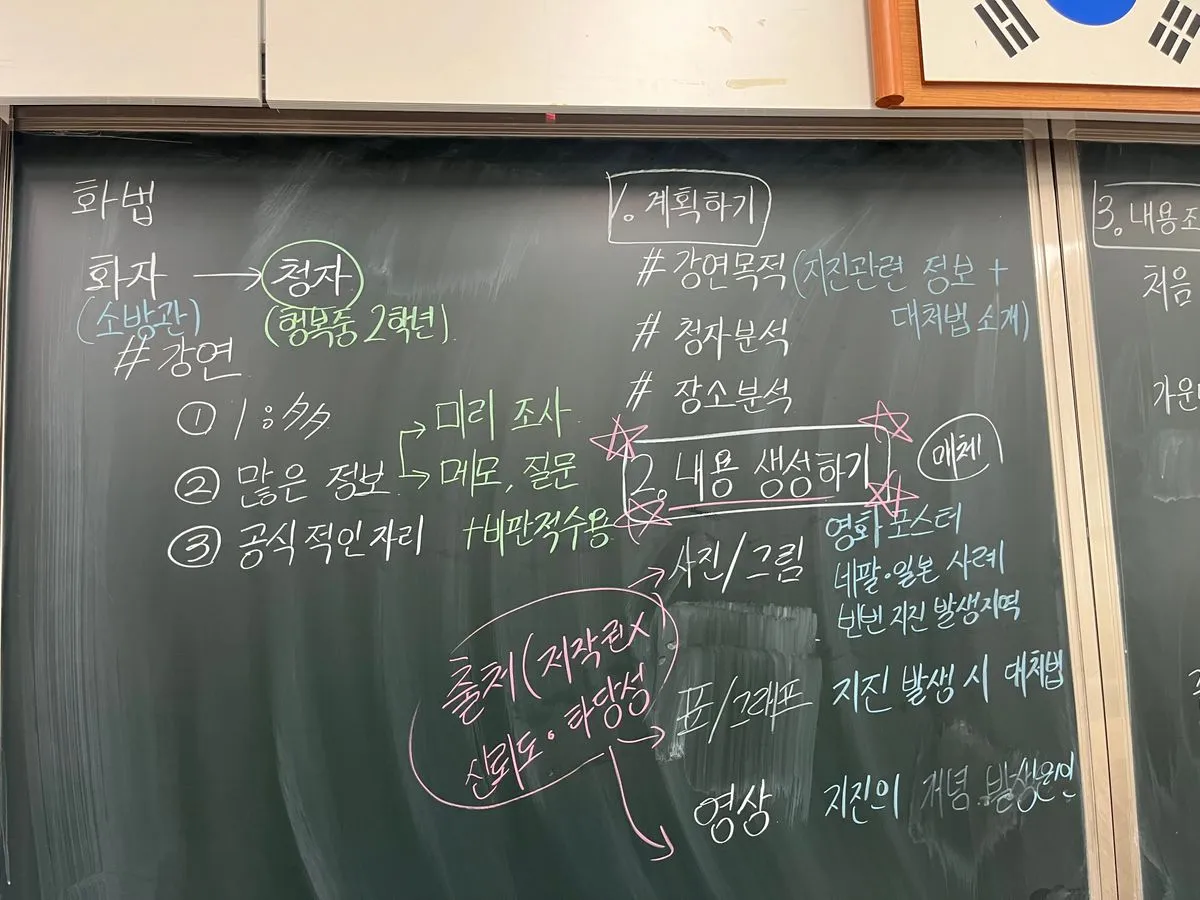 화법
화자 → 청자
(소방관) (행복중 2학년)
# 강연
① 1:多
② 많은 정보 → 미리 조사
→ 메모, 질문
③ 공식적인 자리 +비판적수용
1. 계획하기
# 강연목적 (지진관련 정보 +
대처법 소개)
# 청자분석
# 장소분석
2. 내용 생성하기 매체
→ 사진/그림 영화 포스터
네팔·일본 사례
빈번 지진 발생지역
출처 (저작권X
신뢰도·타당성
→ 표/그래프 지진 발생 시 대처법
→ 영상 지진의 개념 발생원인
3. 내용조
처음
가운